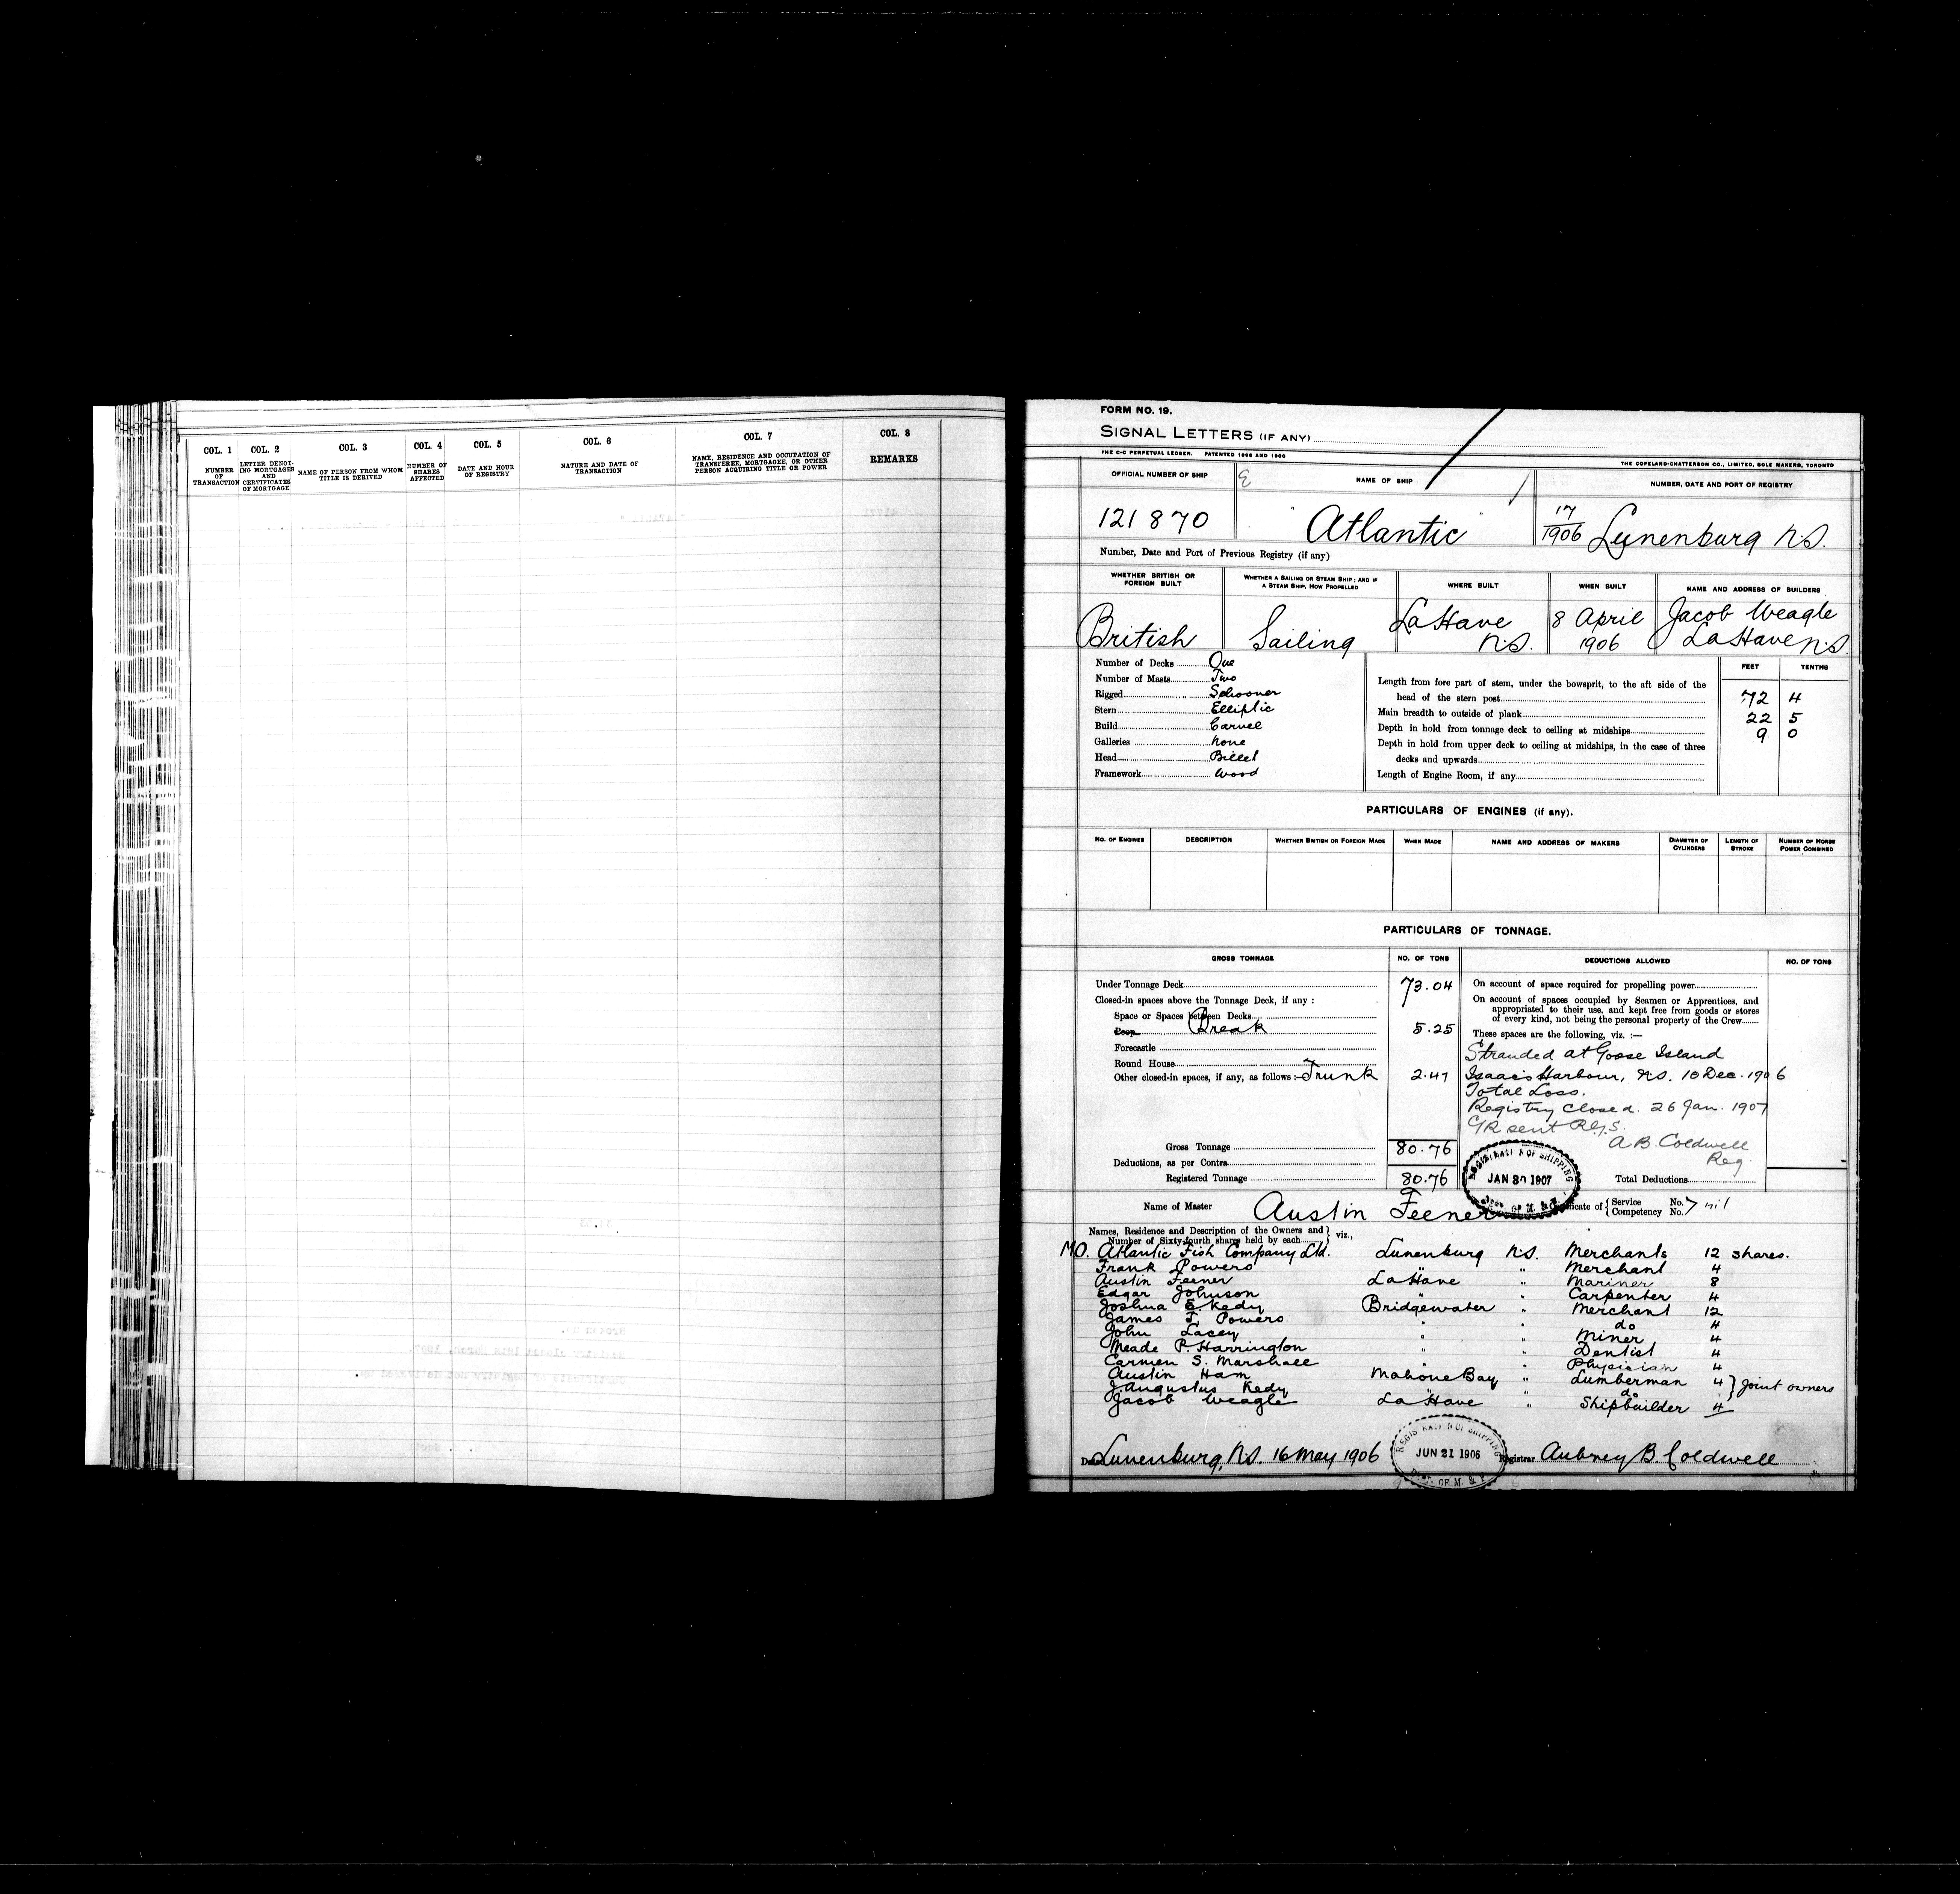 COL. 1
NUMBER OF TRANSACTION
COL. 2
LETTER DENOTING MORTGAGES AND CERTIFICATES OF MORTGAGE
COL. 3
NAME OF PERSON FROM WHOM TITLE IS DERIVED
COL. 4
NUMBER OF SHARES AFFECTED
COL. 5
DATE AND HOUR OF REGISTRY
COL. 6
NATURE AND DATE OF TRANSACTION
COL. 7
NAME, RESIDENCE AND OCCUPATION OF TRANSFEREE, MORTGAGEE, OR OTHER PERSON ACQUIRING TITLE OR POWER
COL. 8
REMARKS
FORM NO. 19.
SIGNAL LETTERS (IF ANY)
THE C-C PERPETUAL LEDGER. PATENTED 1898 AND 1900
THE COPELAND-CHATTERSON CO., LIMITED, SOLE MAKERS, TORONTO
OFFICIAL NUMBER OF SHIP
NAME OF SHIP
NUMBER, DATE AND PORT OF REGISTRY
121870
"Atlantic"
17/1906 Lunenburg N.S.
Number, Date and Port of Previous Registry (if any)
WHETHER BRITISH OR FOREIGN BUILT
WHETHER A SAILING OR STEAM SHIP; AND IF A STEAM SHIP, HOW PROPELLED
WHERE BUILT
WHEN BUILT
NAME AND ADDRESS OF BUILDERS
British
Sailing
LaHave N.S.
8 April 1906
Jacob Weagle
LaHave N.S.
Number of Decks One
Number of Masts Two
Rigged Schooner
Stern Elliptic
Build Carvel
Galleries None
Head Billet
Framework Wood
FEET TENTHS
Length from fore part of stem, under the bowsprit, to the aft side of the
head of the stern post 72 4
Main breadth to outside of plank 22 5
Depth in hold from tonnage deck to ceiling at midships 9 0
Depth in hold from upper deck to ceiling at midships, in the case of three
decks and upwards
Length of Engine Room, if any
PARTICULARS OF ENGINES (if any).
NO. OF ENGINES
DESCRIPTION
WHETHER BRITISH OR FOREIGN MADE
WHEN MADE
NAME AND ADDRESS OF MAKERS
DIAMETER OF CYLINDERS
LENGTH OF STROKE
NUMBER OF HORSE POWER COMBINED
PARTICULARS OF TONNAGE.
GROSS TONNAGE
NO. OF TONS
DEDUCTIONS ALLOWED
NO. OF TONS
Under Tonnage Deck 73.04
Closed-in spaces above the Tonnage Deck, if any :
Space or Spaces between Decks
Poop Break 5.25
Forecastle
Round House
Other closed-in spaces, if any, as follows :— Trunk 2.47
Gross Tonnage 80.76
Deductions, as per Contra
Registered Tonnage 80.76
On account of space required for propelling power
On account of spaces occupied by Seamen or Apprentices, and
appropriated to their use, and kept free from goods or stores
of every kind, not being the personal property of the Crew
These spaces are the following, viz. :—
Stranded at Goose Island
Isaac's Harbour, N.S. 10 Dec. 1906
Total Loss.
Registry Closed. 26 Jan. 1907
A.B. Coldwell
Reg.
JAN 30 1907
Total Deductions
Name of Master Austin Feener
Certificate of { Service No. Competency No. } nil
Names, Residence and Description of the Owners and
Number of Sixty-fourth shares held by each } viz.,
M.O. Atlantic Fish Company Ltd. Lunenburg N.S. Merchants 12 shares.
Frank Powers " " Merchant 4
Austin Feener LaHave " Mariner 8
Edgar Johnson " " Carpenter 4
Joshua E. Kedy Bridgewater " Merchant 12
James T. Powers " " do 4
John Lacey " " Miner 4
Meade P. Harrington " " Dentist 4
Carmen S. Marshall " " Physician 4
Austin Ham Mahone Bay " Lumberman 4 } Joint owners
J. Angustus Kedy " " do "
Jacob Weagle LaHave " Shipbuilder 4
Date Lunenburg, N.S. 16 May 1906
JUN 21 1906
Registrar Aubrey B. Coldwell